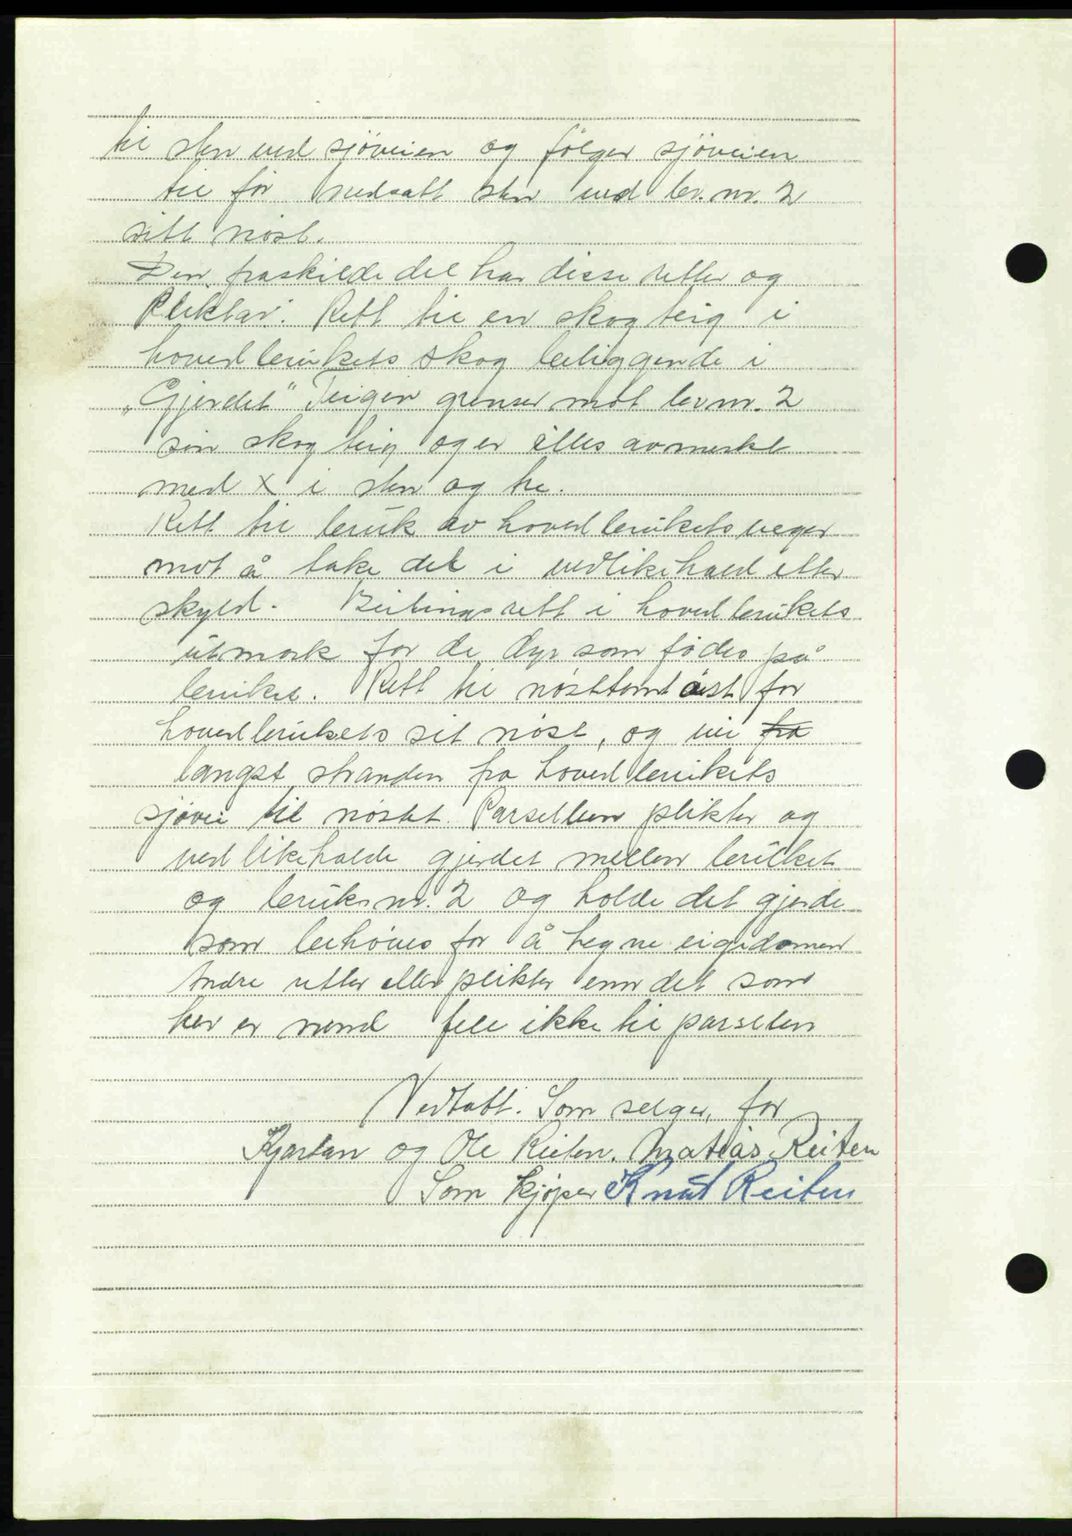 til sten ved sjöveien og fölger sjöveien
til för nedsatt sten ved br.nr. 2
sitt nöst.
Den fraskilde del har disse retter og
Plikter: Rett til en skog teig i
hovedbrukets skog beliggende i
„Gjerdet" Teigen grenser mot br.nr. 2
sin skog teig og er elles avmerkt
med X i sten og tre.
Rett til bruk av hovedbrukets veger
mot å take del i vedlikehald etter
skyld. Beitingsrett i hovedbrukets
utmark for de dyr som födes på
bruket. Rett til nösttomt öst for
hovedbrukets sit nöst, og vei fra
langst stranden fra hovedbrukets
sjövei til nöstet. Parsellen plikter og
vedlikeholde gjerdet mellem bruket
og bruksnr. 2 og holde det gjerde
som behöves for å hegne eigedomen
Andre retter eller plikter enn det som
her er nemd fell ikke til parsellen
Vedtatt. Som selger, for
Kjartan og Ole Reiten. Matias Reiten
Som kjöper Knut Reiten